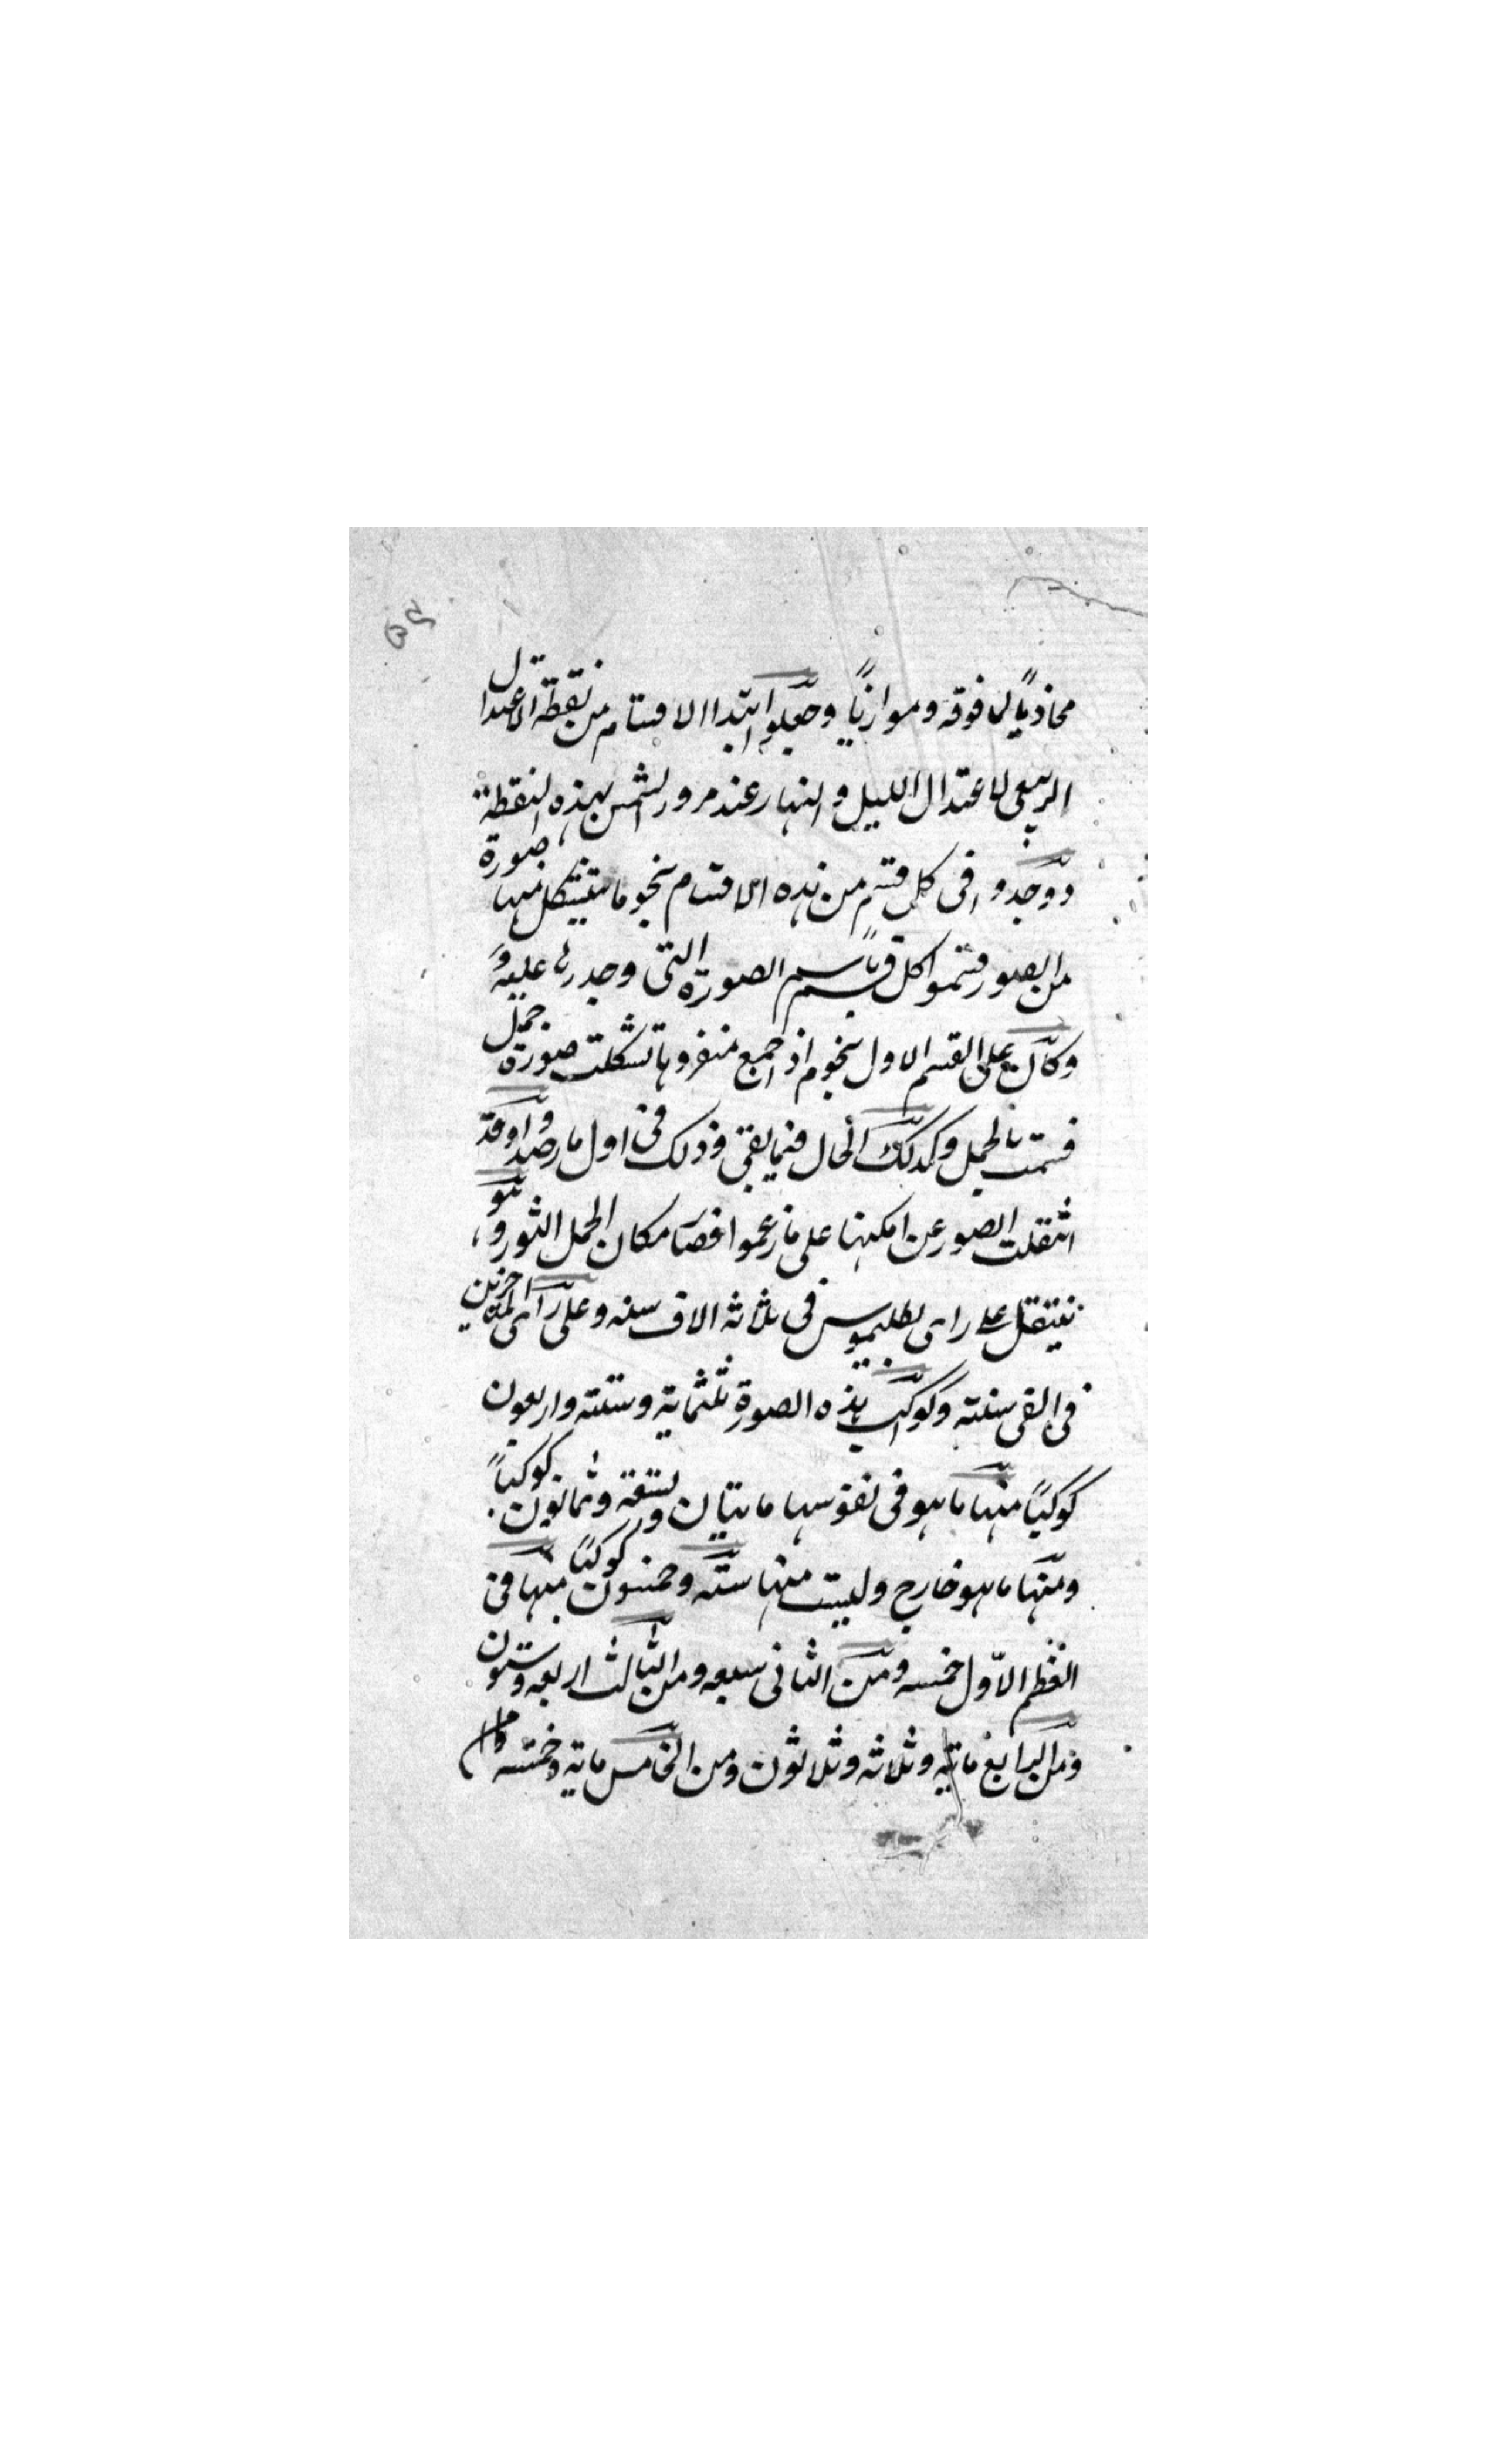 محاذيًا لما فوقه وموازيًا وجعلوا ابتدا الاقسام من نقطة الاعتدال
الربيعى لاعتدال الليل والنهار عند مرور الشمس بهذه النقطة
ووجدوا فى كل قسم من هذه الاقسام نجوما يتشكل منها صورة
من الصور فسموا كل قسم باسم الصورة التى وجدوها عليه
وكان على القسم الاول نجوم اذ اجمع متفرقها تشكلت صورة حمل
فسمت بالحمل وكذلك الحال فيما بقى وذلك فى اول ما رصدوا وقد
انتقلت الصور عن امكنها على ما زعموا فصار مكان الحمل الثور وهو
ينتقل على راى بطليموس فى ثلاثه الاف سنه وعلى راى المتاخرين
فى الفى سنته وكواكب هذه الصورة ثلثماية وستته واربعون
كوكبًا منها ما هو فى نفوسها مايتان وتسعة وثمانون كوكبًا
ومنها ما هو خارج وليست منها سته وخمسون كوكبًا منها فى
العظم الاول خمسه ومن الثانى سبعه ومن الثالث اربعه وستون
ومن الرابع مايه وثلاثه وثلاثون ومن الخامس مايه وخمسه